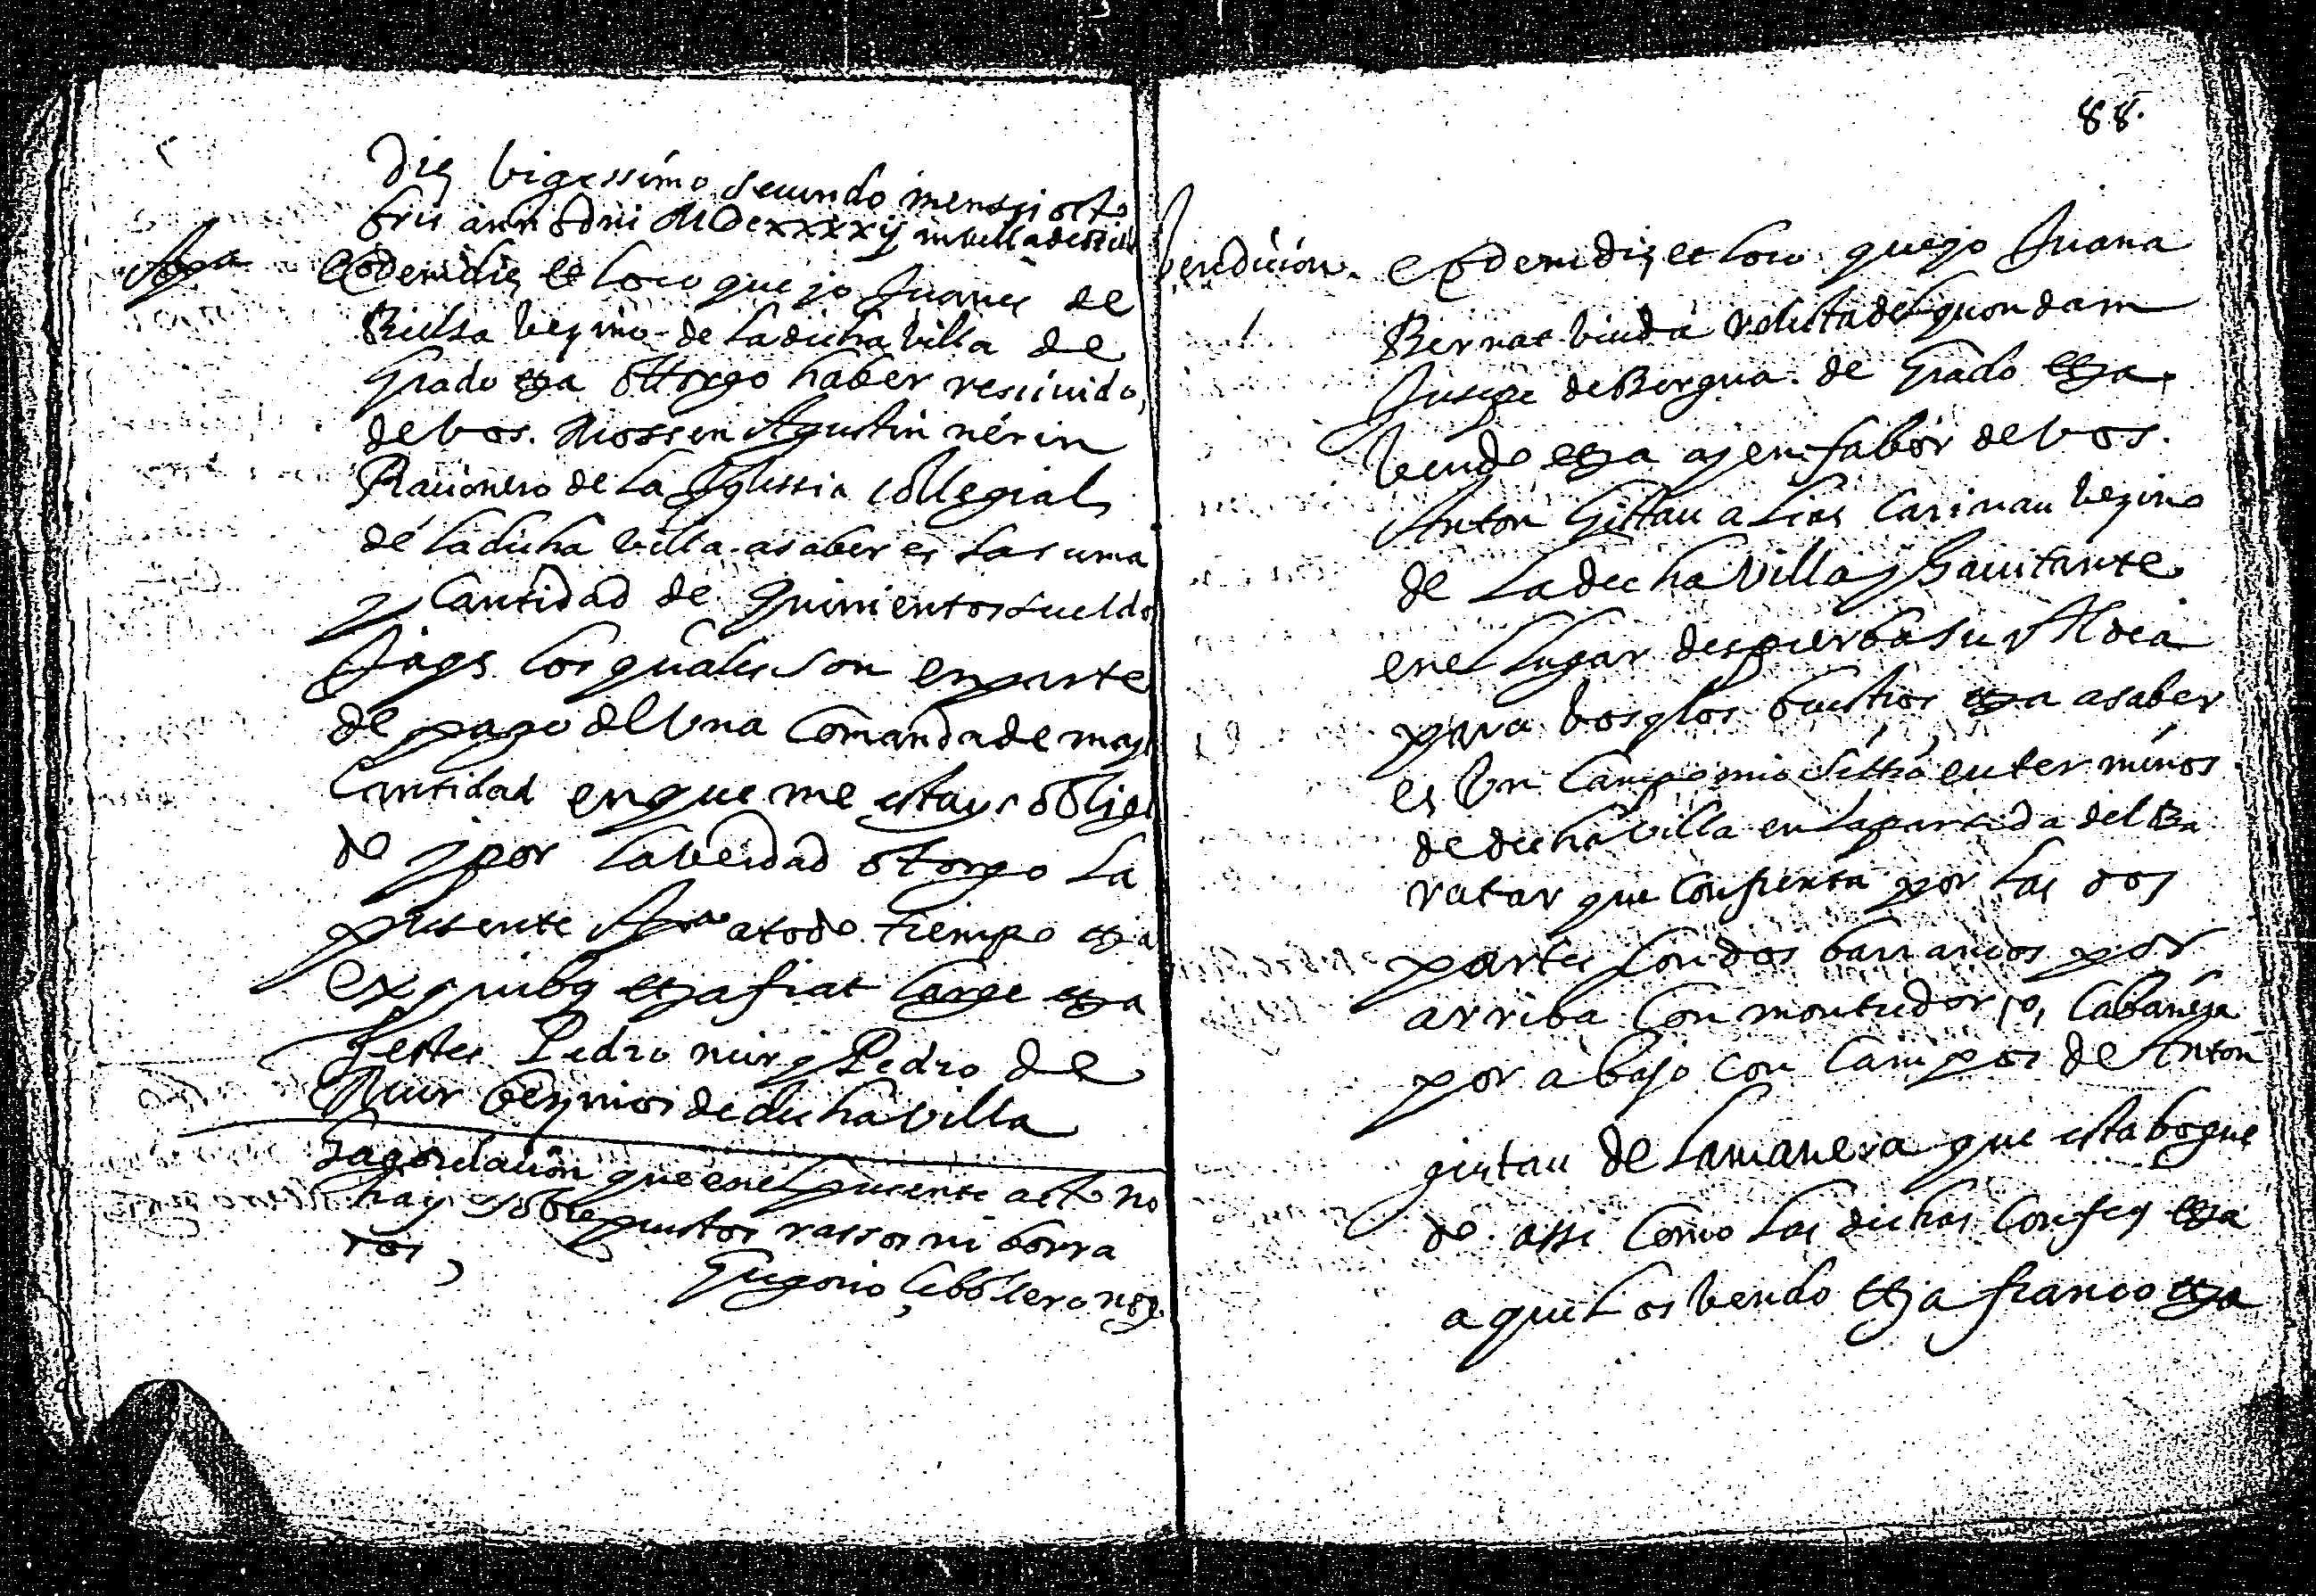 Die vigessimo secundo mensis octo
bris anno dni MDCxxxxij in villa de
Apª Eodem die et loco que jo Juanes de
Bielsa vezino de la dicha villa de
Grado etza ottorgo haber rescivido
de vos Mossen Agustin nerin
Racionero de la Iglissia collegial
de la dicha villa asaber es la suma
y Cantidad de quinientos sueldos
Jaqs los quales son en parte
de pago de una Comanda de mayor
Cantidad en que me estays obliga
do y por la verdad otorgo la
presente Apª a todo tiempo etza
ex quibus etza fiat large etza
Testes Pedro mur y Pedro de
Mur vezinos de dicha villa
Hago relacion que en el presente acto no
hay sobrepuestos rassos ni borra
dos
Gregorio Cebollero not.
88.
Vendicion. Eodem die et loco que jo Juana
Bernat viuda relicta del quondam
Jusepe de Bergua de Grado etza
vendo etza aj en fabor de vos
Anton Gittau alias Carinau vezino
de la dicha Villa y havitante
en el lugar despierba su Aldea
para vos y los buestros etza asaber
es Un Campo mio sittio en terminos
de dicha villa en la partida del Ba
ratar que confrenta por las dos
partes con dos barrancos por
arriba con montedorso, Cabanera
por abajo con Campos de Anton
gittau de la manera que esta bogue
do assi como las dichas confes etza
aquel os vendo etza franco etza